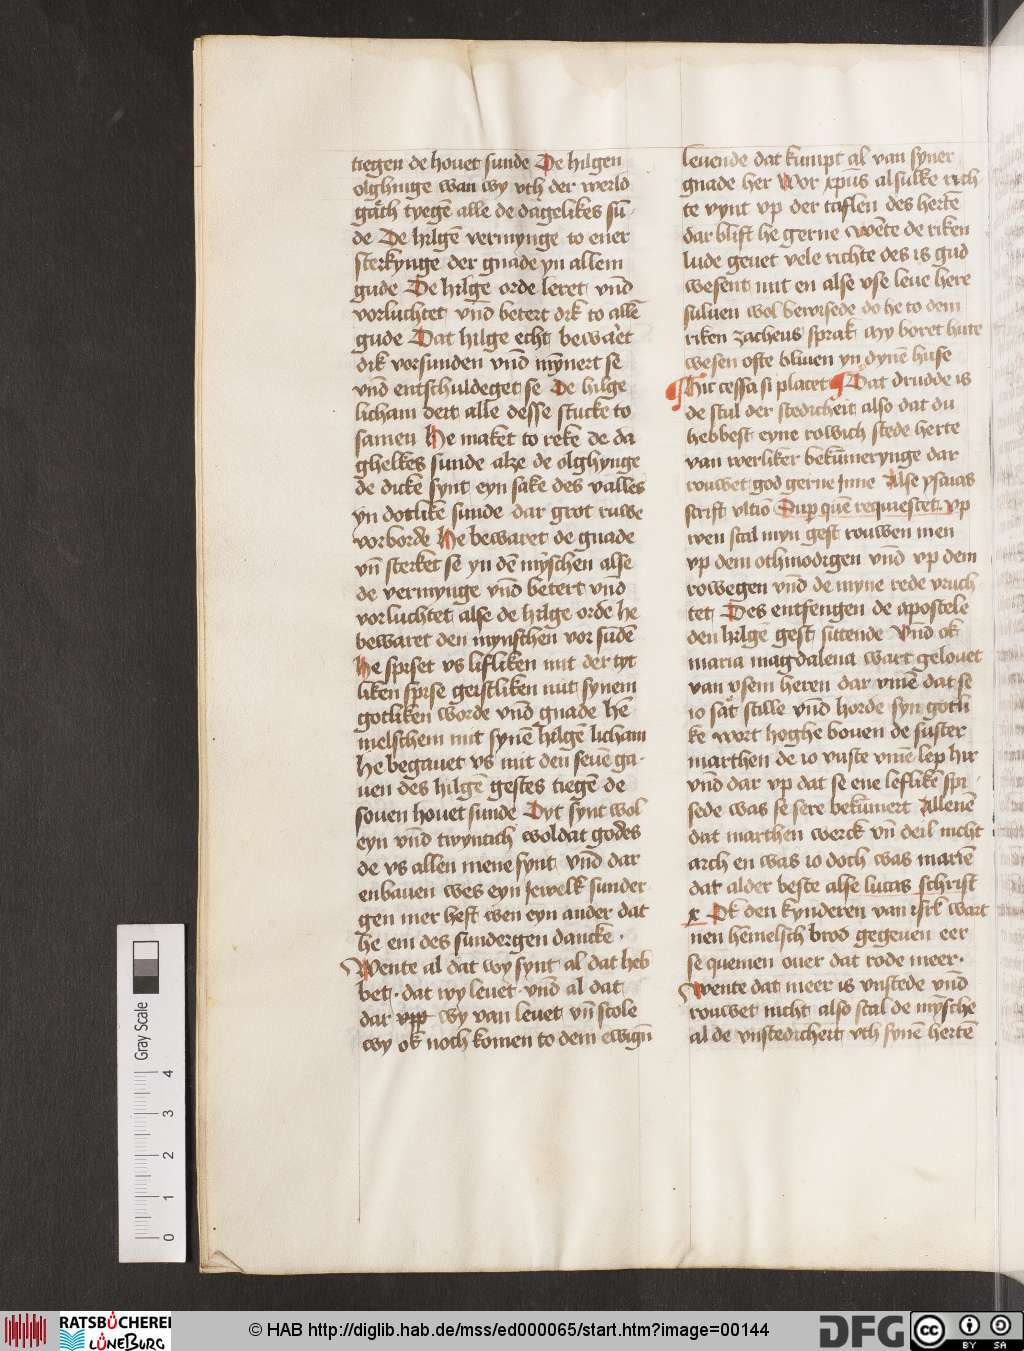 tiegen de houet sunde De hilgen
olghinge wan wy vth der werld
gaͤth tyegē alle de dagelikes sū-
de De hilgē vermynge to ener
sterkynge der gnade yn allem
gude De hilge orde leret vnd̄
vorluchtet vnd̄ betert dik to allē
gude Dat hilge echt bewaͤret
dik vorsunden vnd̄ mȳnert se
vnd̄ entschuldeget se De hilge
licham deit alle desse stucke to
samen He maket to reke de da
ghelkes sunde alze de olghynge
de dicke synt eyn sake des valles
yn dotlike sunde dar grot ruwe
vorborde He bewaret de gnade
vn̄ sterket se yn dē mȳschen alse
de vermynge vnd̄ betert vnd̄
vorluchtet alse de hilge orde he
bewaret den mynschen vor sūdē
He spiset vs lifliken mit der tyt
liken spise geistliken mit synem
gotliken worde vnd̄ gnade he
melschem mit synē hilgē licham
He begauet vs mit den seuē ga-
uen des hilgē gestes tiegē de
souen houet sunde Dyt synt wol
eyn vnd̄ twyntich woldat godes
de vs allen mene synt vnd̄ dar
enbauen wes eyn jewelk sunder
gen mer heft wen eyn ander dat
he em des sundergen dancke ·
Wente al dat wy synt al dat heb
bet · dat wy leuet · vnd̄ al dat
dar vpp wy van leuet vn̄ scole
wy ok noch komen to dem ewign̄
leuende dat kumpt al van syner
gnade her Wor xpūs alsulke rich
te vynt vp der taflen des hertē
dar blift he gerne wēte de riken
lude geuet vele richte des is gud
wesent mit en alse vse leue here
suluen wol bewisede do he to dem
riken zacheus sprak My boret hute
wesen ofte bliuen yn dynē huse
Hic cessa si placet Dat drudde is
de stul der stedicheit also dat du
hebbest eyne rowich stede herte
van werliker bekūmerynge dar
rouwet god gerne jnne Alse ysaias
scrift vltīo Sup quē requiescet. Vp
wen scal myn gest rouwen men
vp dem othmodigen vnd̄ vp dem
rowegen vnd̄ de myne rede vruch
tet Des entfengen de apostele
den hilgē gest sittende Vnd̄ ok
maria magdalena wart gelouet
van vsem heren dar vmē dat se
io saͤt stille vnd̄ horde syn gotli
ke wort hoghe bouen de suster
marthen de io vaste vmē lep hir
vnd̄ dar vp dat se ene leflikē spi
sede was se sere bekūmert Allenē
dat marthen werck vn̄ deil nicht
arch en was io doch was mariē
dat alder beste alse lucas schrift
x Ok den kynderen van isrl̄ wart
nen hemelsch brod gegeuen eer
se quemen ouer dat rode meer ·
Wente dat meer is vnstede vnd̄
rouwet nicht also scal de mȳsche
al de vnstedicheit vth synē hertē
Gray Scale
0 1 2 3 4
RATSBÜCHEREI
LÜNEBURG
© HAB http://diglib.hab.de/mss/ed000065/start.htm?image=00144
DFG
cc BY SA